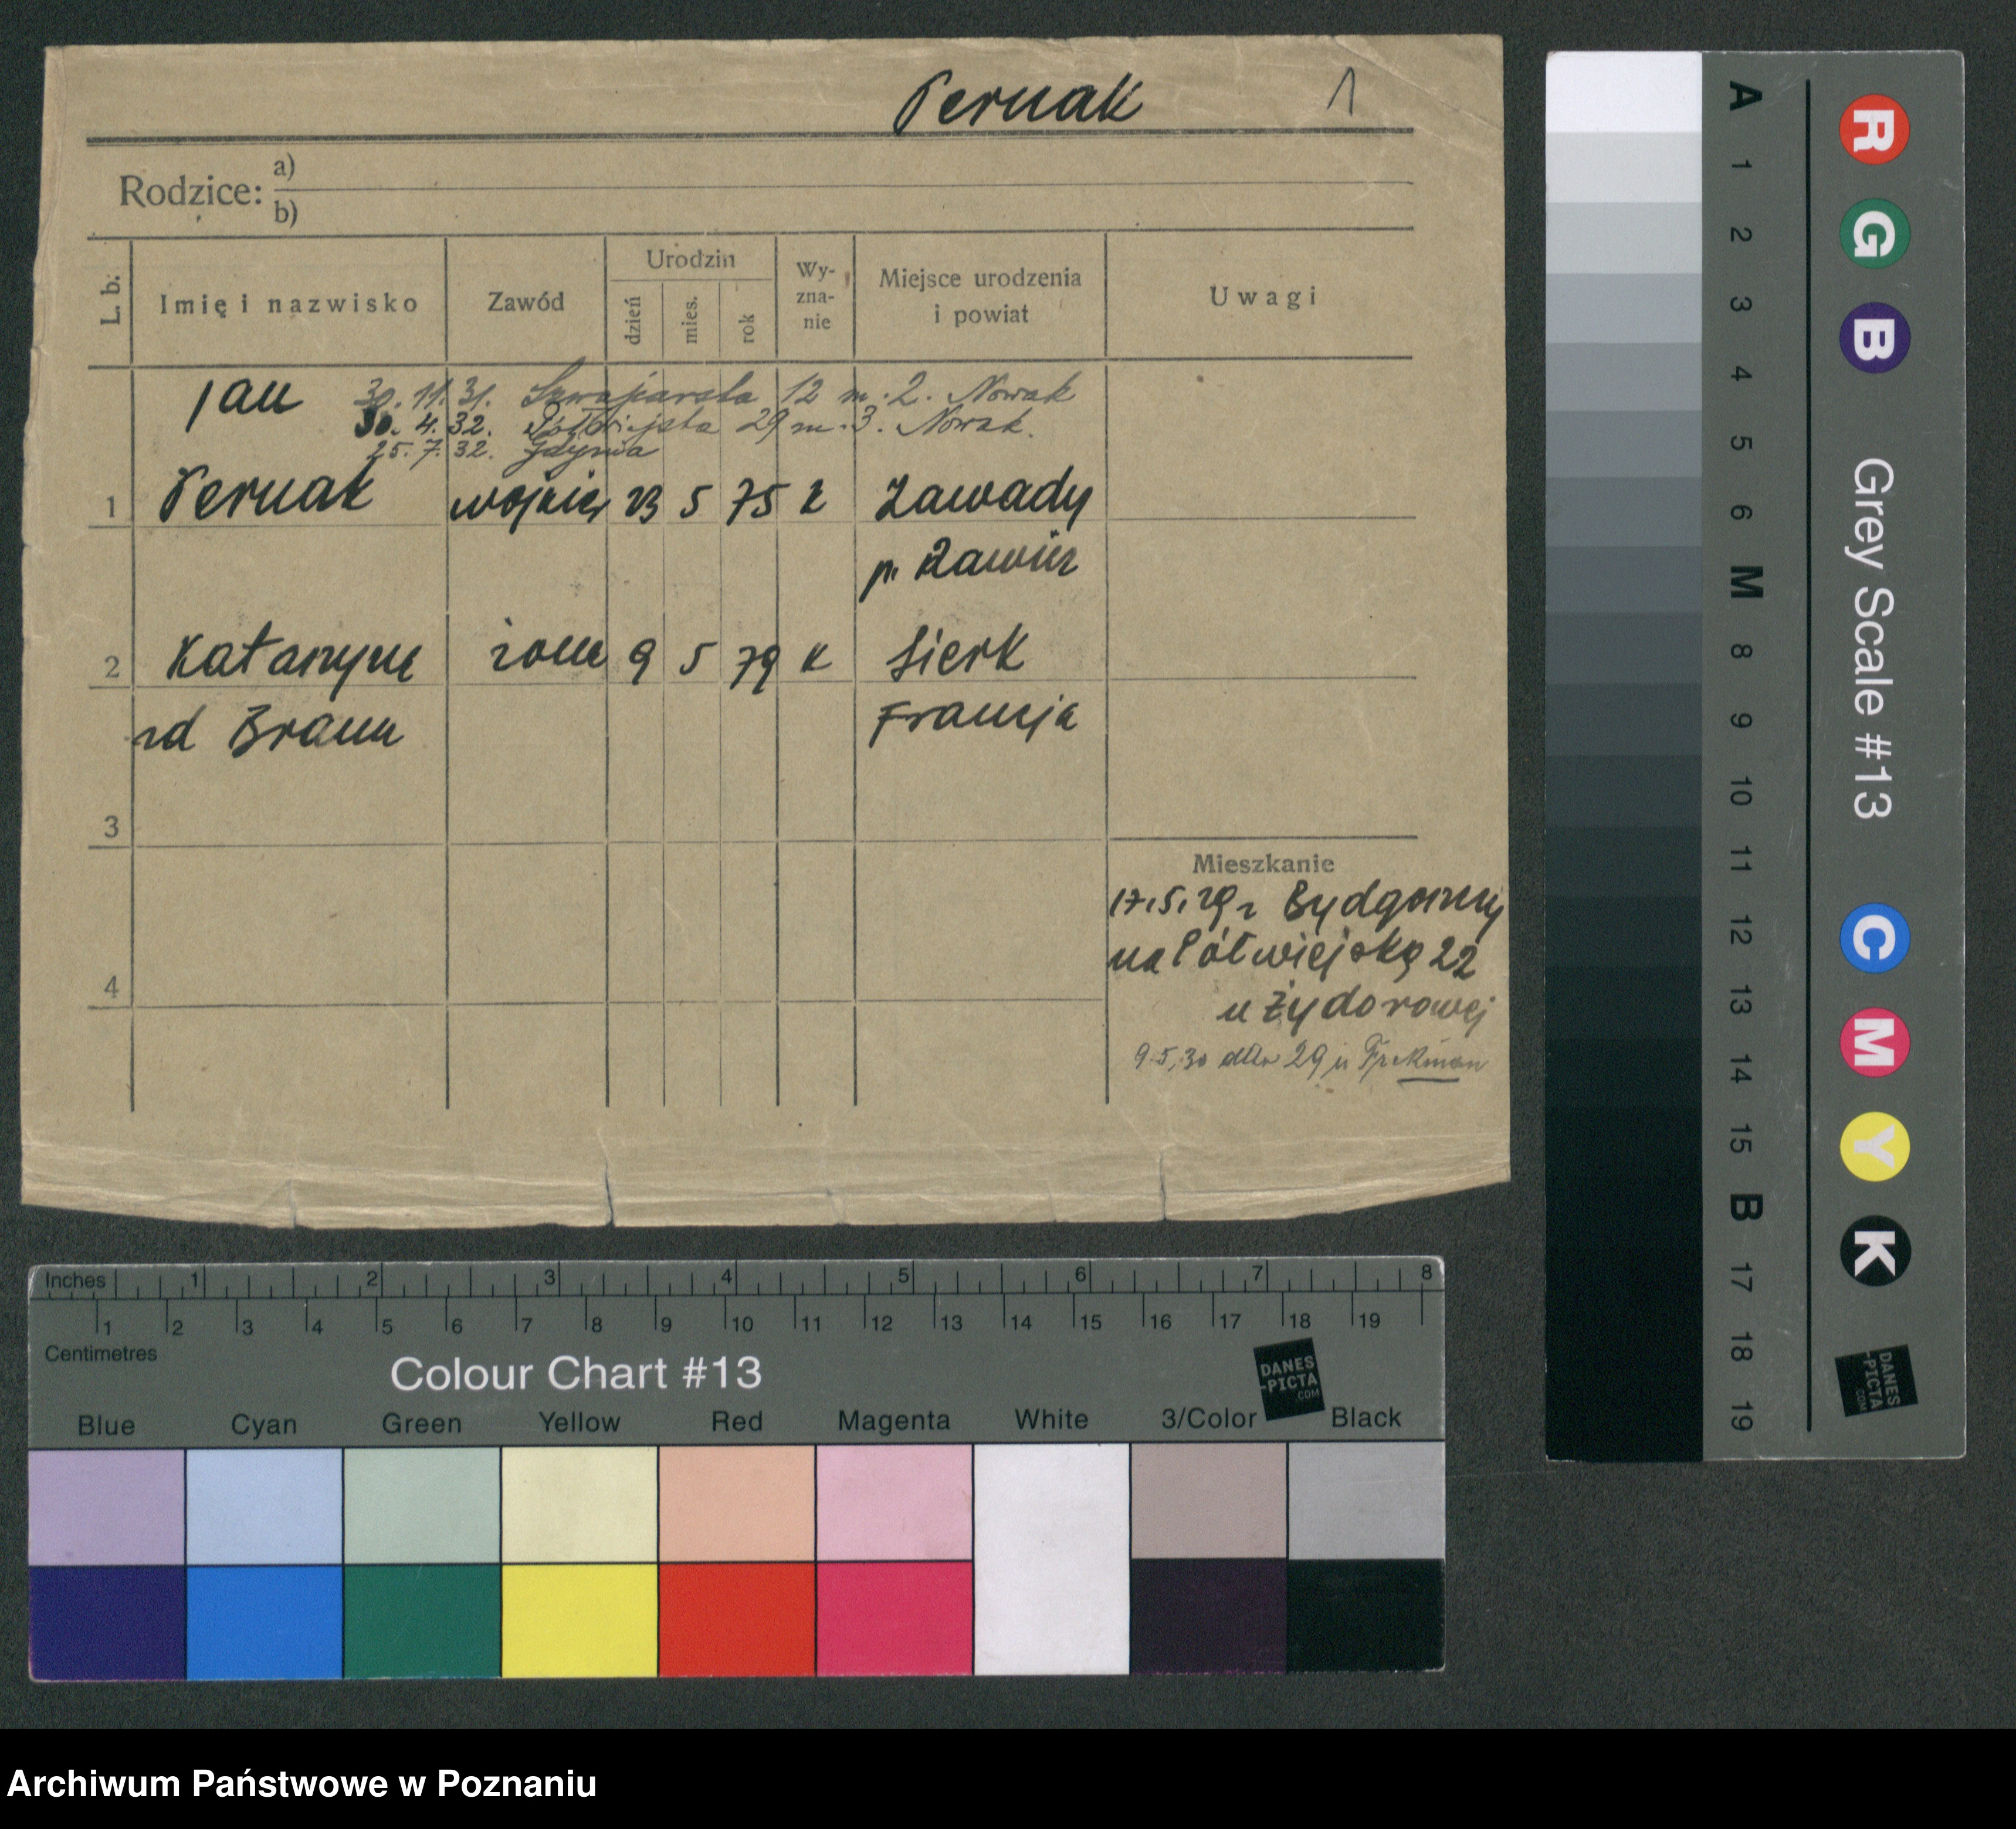 Pernak 1
Rodzice: a)
b)
L. b. Imię i nazwisko Zawód Urodzin dzień mies. rok Wy-zna-nie Miejsce urodzenia i powiat Uwagi
Jan 30. 11. 31. Szwajcarska 12 m. 2. Nowak
30. 4. 32. Półwiejska 29 m. 3. Nowak.
25. 7. 32. Gdynia
1 Pernak 23 5 75 k Zawady
p. Zawier
2 Katarzyna żona 9 5 79 k Sierk
rd Braun Francja
3
Mieszkanie
17.5.29 z Bydgoszczy
na Półwiejską 22
4
u Żydorowej
9.5.30 29 u
Inches 1 2 3 4 5 6 7 8
1 2 3 4 5 6 7 8 9 10 11 12 13 14 15 16 17 18 19
Centimetres
Colour Chart #13
DANES
-PICTA
.COM
Blue Cyan Green Yellow Red Magenta White 3/Color Black
A 1 2 3 4 5 6 M 8 9 10 11 12 13 14 15 B 17 18 19
R G B Grey Scale #13 C M Y K
DANES
-PICTA
.COM
Archiwum Państwowe w Poznaniu